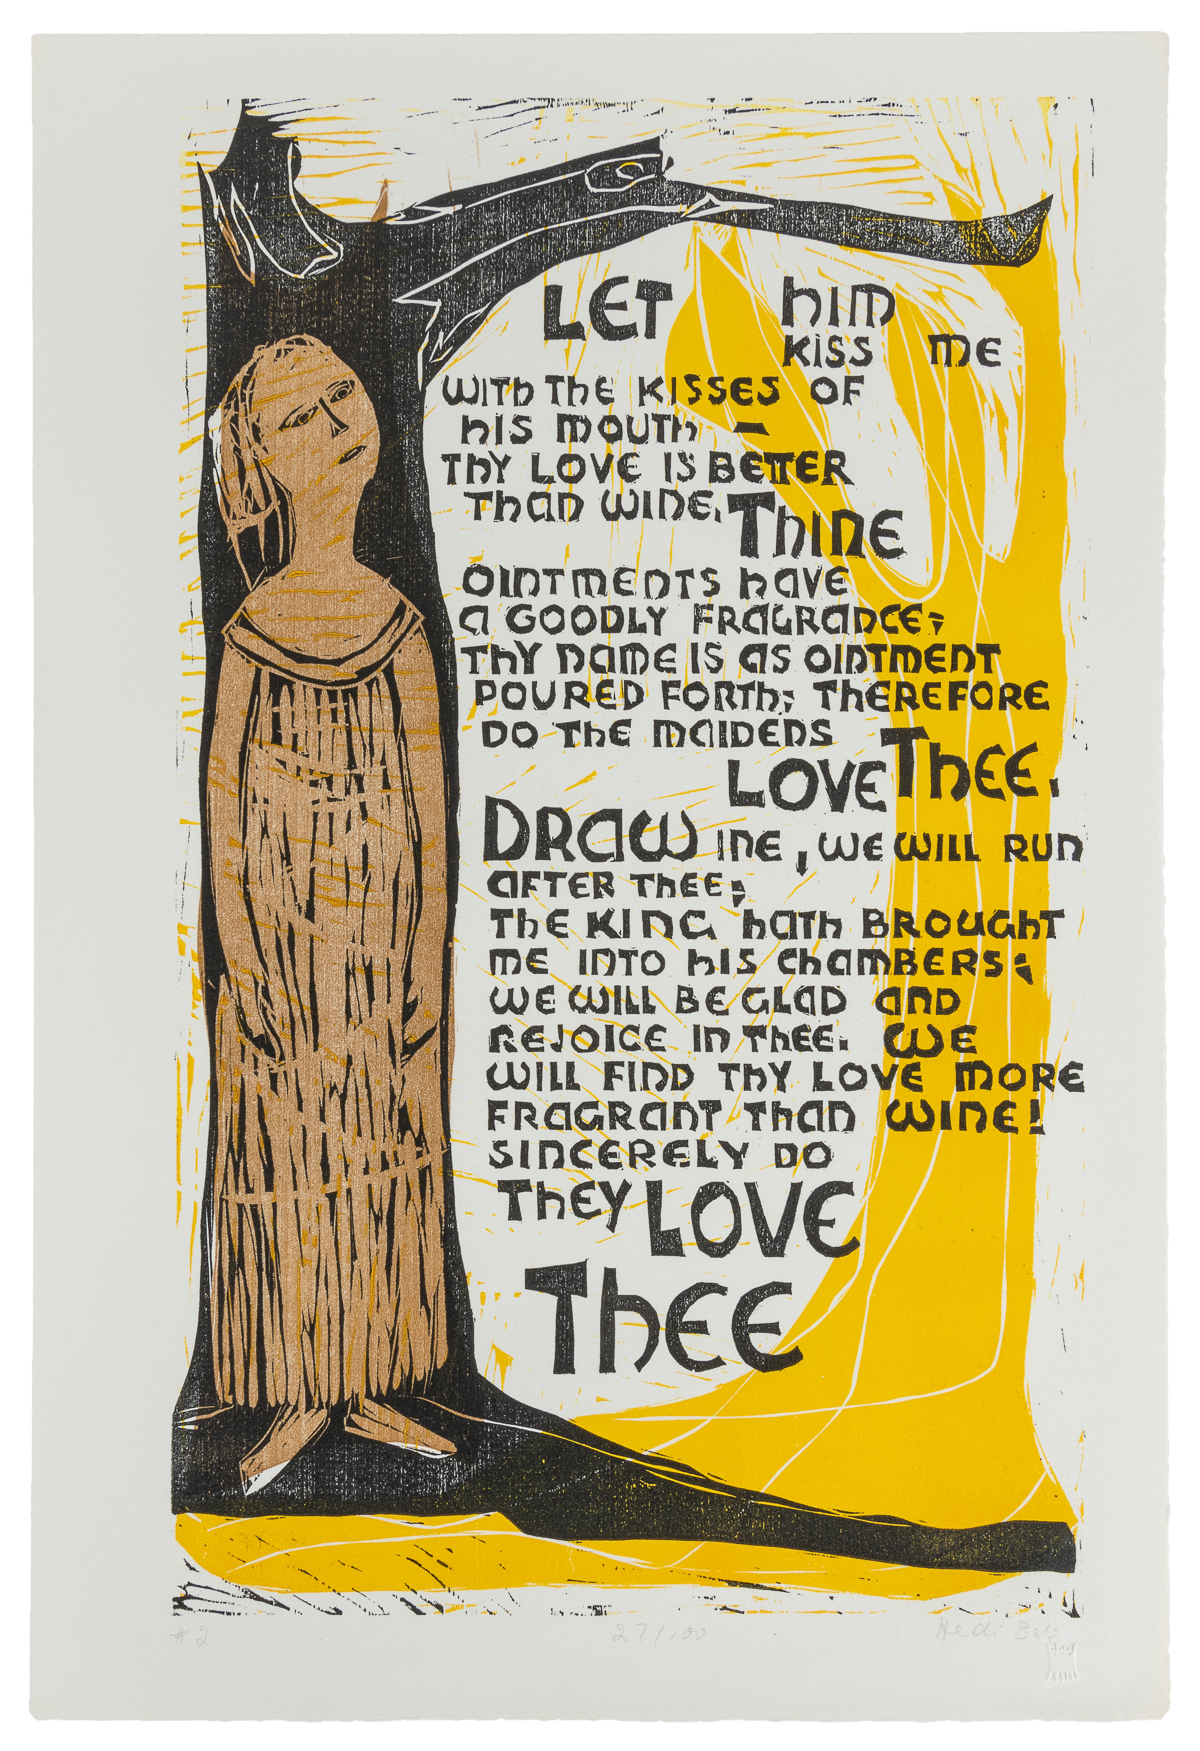 LET him
KISS ME
WITH THE KISSES OF
HIS MOUTH —
THY LOVE IS BETTER
THAN WINE. THINE
OINTMENTS HAVE
A GOODLY FRAGRANCE;
THY NAME IS AS OINTMENT
POURED FORTH; THEREFORE
DO THE MAIDENS
LOVE THEE.
DRAW ME, WE WILL RUN
AFTER THEE;
THE KING HATH BROUGHT
ME INTO HIS CHAMBERS;
WE WILL BE GLAD AND
REJOICE IN THEE. WE
WILL FIND THY LOVE MORE
FRAGRANT THAN WINE!
SINCERELY DO
THEY LOVE
THEE
#2 27/100 Hedi